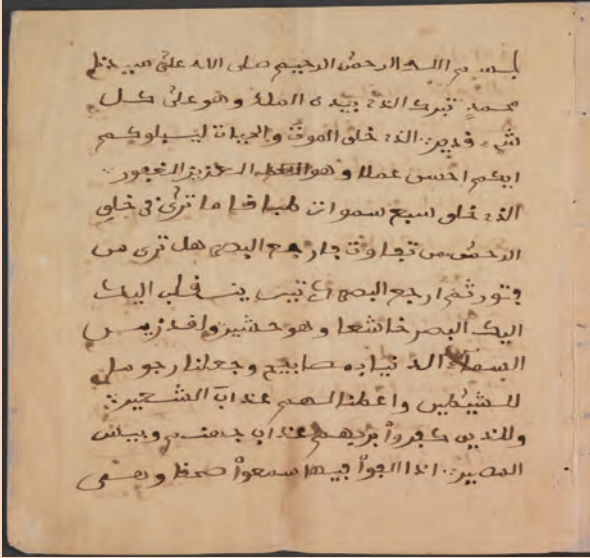 بسم الله الرحمن الرحيم صلى الله على سيدنا
محمد تبرك الذي بيده الملك وهو على كل
شيء قدير ∴ الذي خلق الموت والحيات ليبلوكم
ايكم احسن عملا وهو العزيز الغفور ∴
الذي خلق سبع سموات طباقا ما ترى في خلق
الرحمن من تفاوت فارجع البصر هل ترى من
فتور ثم ارجع البصر ينقلب اليك
اليك البصر خاشعا وهو حشير ولقد زين
السماء الدنيا بمصابيح وجعلنا
للشيطين واعطنا لهم عذاب الشعير ∴
وللذين كفروا بربهم عذاب جهنم وبيس
المصير ∴ اذا الجوا فيها سمعوا وهي